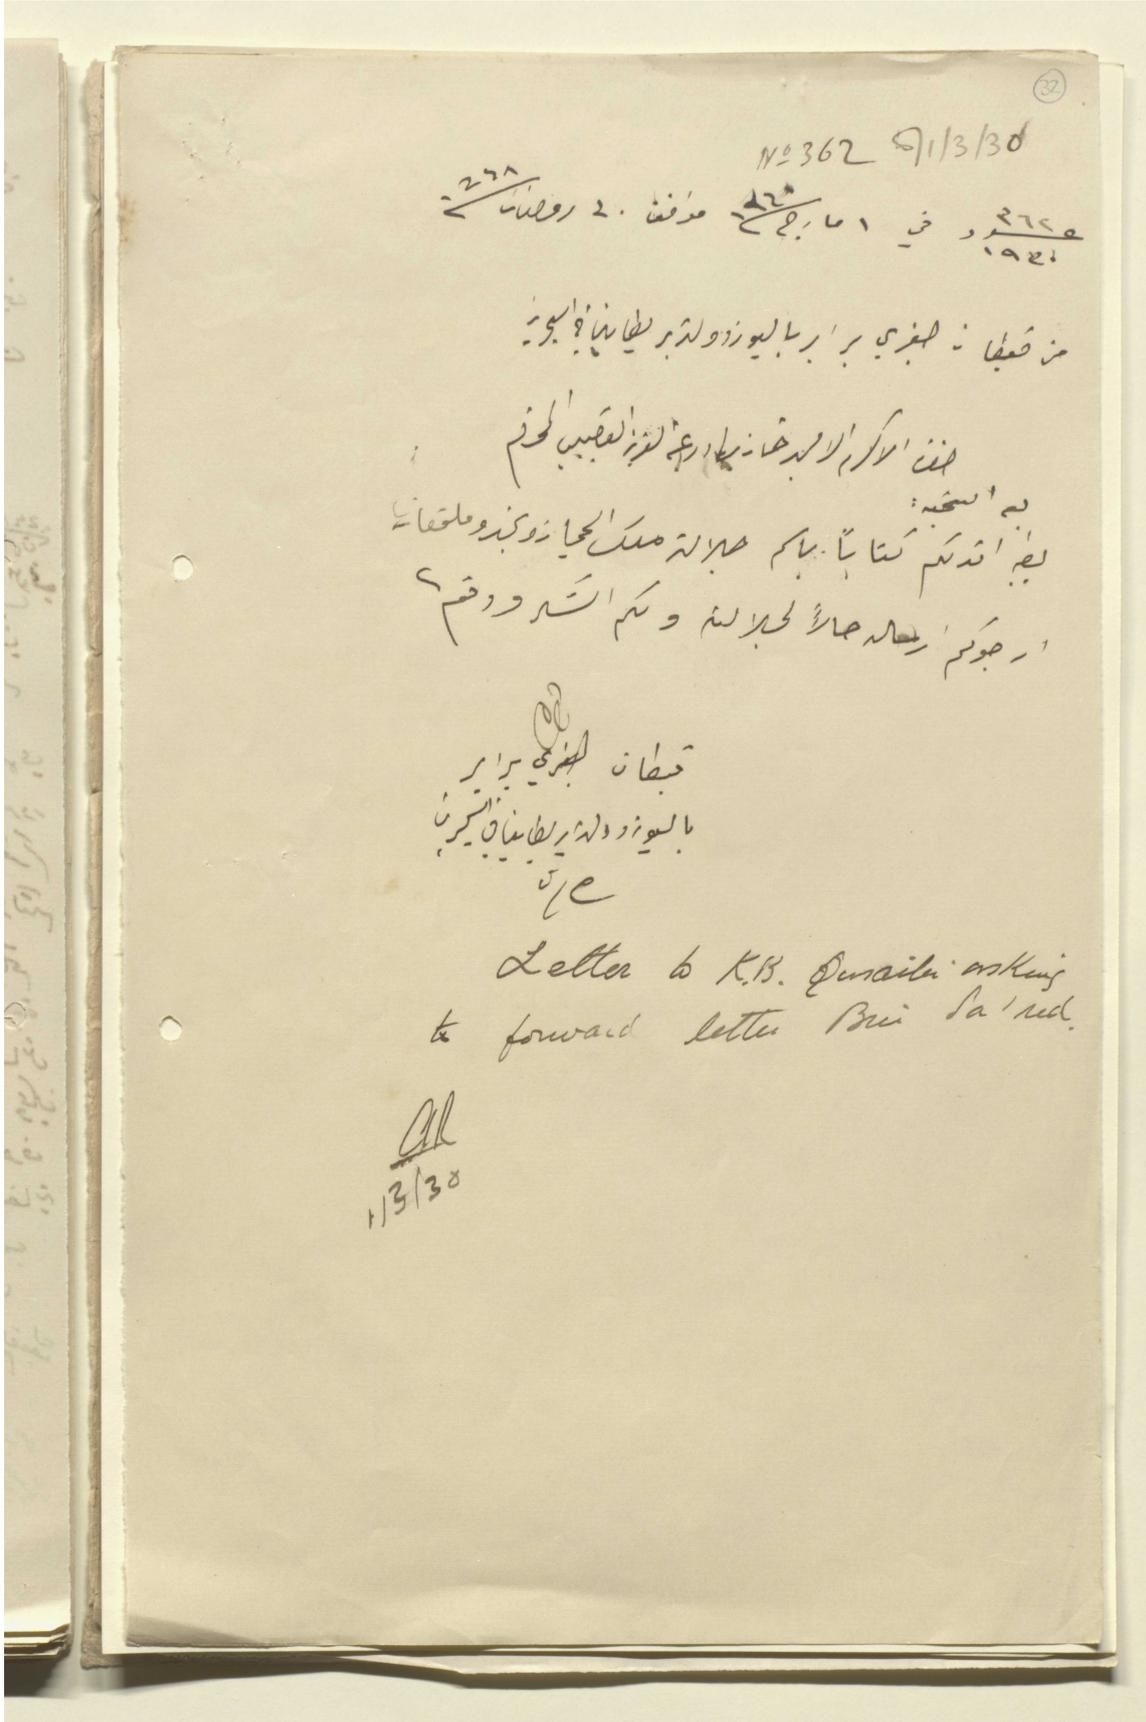 32
No 362 of 1/3/30
٣٦٢
١٩٣٠
في ١ مارج ١٩٣٠ موافق ٣٠ رمضان ١٣٤٨
من قبطان جفري برابر باليوز دولة بريطانيا في البحرين
الاكرم الامجد خان بهادر عبد العزيز القصيبي المحترم
بعد التحية:
اقدم لكم كتاباً باسم جلالة ملك الحجاز ونجد وملحقاتها
ارجوكم ارساله حالاً لجلالته ولكم الشكر ودمتم
قبطان جفري برابر
باليوز دولة بريطانيا في البحرين
Letter to K.B. Qusaibi asking
to forward letter Bin Sa'ud.
1/3/30